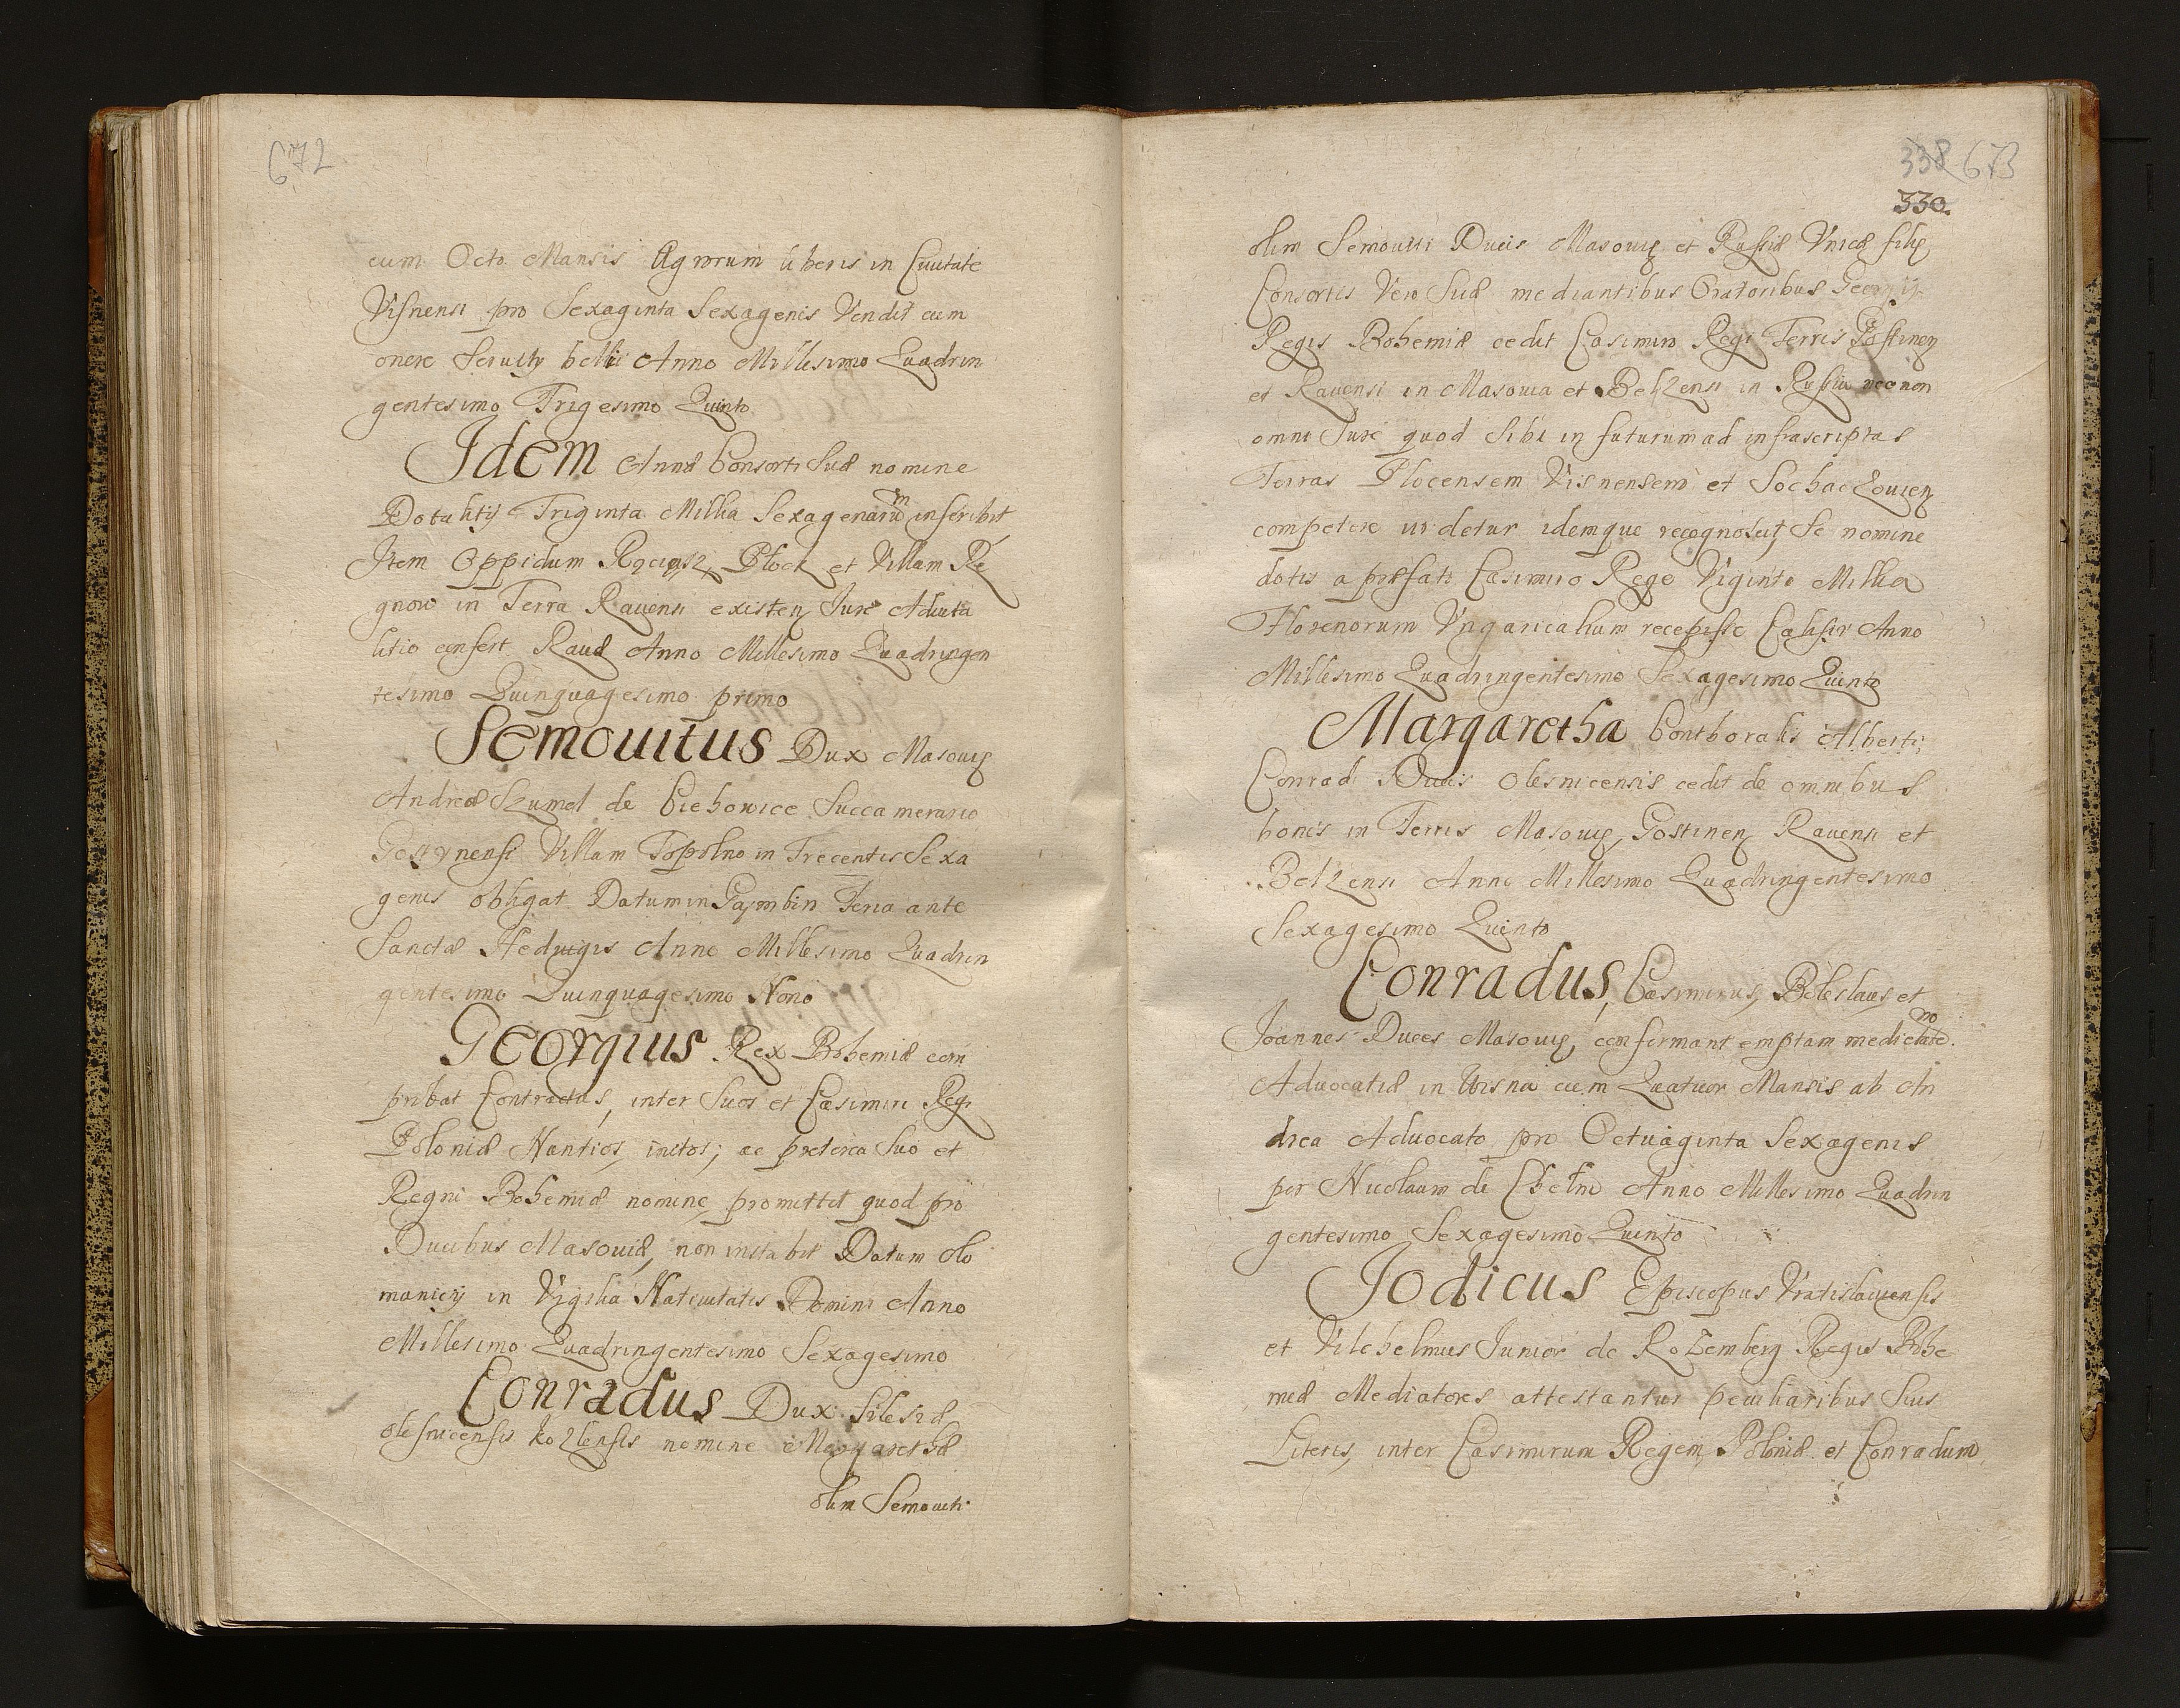 672
cum Octo Mansis Agrorum liberis in Ciuitate
Visnensi pro Sexaginta Sexagenis Vendit cum
onere Seruitij belli Anno Millesimo Quadrin
gentesimo Trigesimo Quinto
Idem Annæ Consorti Suæ nomine
Dotalitij Triginta Millia Sexagenarum inscribit
Item Oppidum Plock et Villam Re
gnow in Terra Rauensi existen Iure Aduita
litio confert Rauæ Anno Millesimo Quadringen
tesimo Quinquagesimo primo
Semouitus Dux Masouię
Andreæ Szumol de Ciehowice Succamerario
Gostynensi Villam Topolno in Trecentis Sexa
genis obligat Datum in Gąmbin Feria ante
Sanctæ Heduigis Anno Millesimo Quadrin
gentesimo Quinquagesimo Nono
Georgius Rex Bohemiæ com
probat Contractus, inter Suos et Casimiri Regi
Poloniæ Nuntios, initos; ac preterea Suo et
Regni Bohemiæ nomine, promittit quod pro
Ducibus Masouiæ, non instabit Datum Olo
monicij in Vigilia Natiuitatis Domini Anno
Millesimo Quadringentesimo Sexagesimo
Conradus Dux Silesiæ
Olesnicensis Kozlensis nomine Margarethæ
olim Semouiti
338 673
330.
olim Semouiti Ducis Masouię et Russiæ Vnicæ filię
Consortis Vero Suæ mediantibus Oratoribus Georgij
Regis Bohemiæ cedit Casimiro Regi Terris Gostinen
et Rauensi in Masouia et Belzensi in Russia necnon
omni Iure quod Sibi in futurum ad infrascriptas
Terras Plocensem Visnensem et Sochaczouien
competere uidetur idemque recognoscit, Se nomine
dotis a præfati Casimiro Rege Viginto Millia
Florenorum Vngaricalium recepisse Calisir Anno
Millesimo Quadringentesimo Sexagesimo Quinto
Margaretha Conthoralis Alberti
Conradi Ducis Olesnicensis cedit de omnibus
bonis in Terris Masouię, Gostinen Rauensi et
Belzensi Anno Millesimo Quadringentesimo
Sexagesimo Quinto
Conradus, Casimirus, Boleslaus et
Joannes Duces Masouię, confirmant emptam medietate.
Aduocatiæ in Uisna cum Quatuor Mansis ab An
drea Aduocato pro Octuaginta Sexagenis
per Nicolaum de Chełm Anno Millesimo Quadrin
gentesimo Sexagesimo Quinto
Jodicus Episcopus Vratislauiensis
et Vilehelmus Iunior de Rozemberg Regis Bohe
miæ Mediatores attestantur peculiaribus Suis
Literis, inter Casimirum Regem, Poloniæ et Conradum